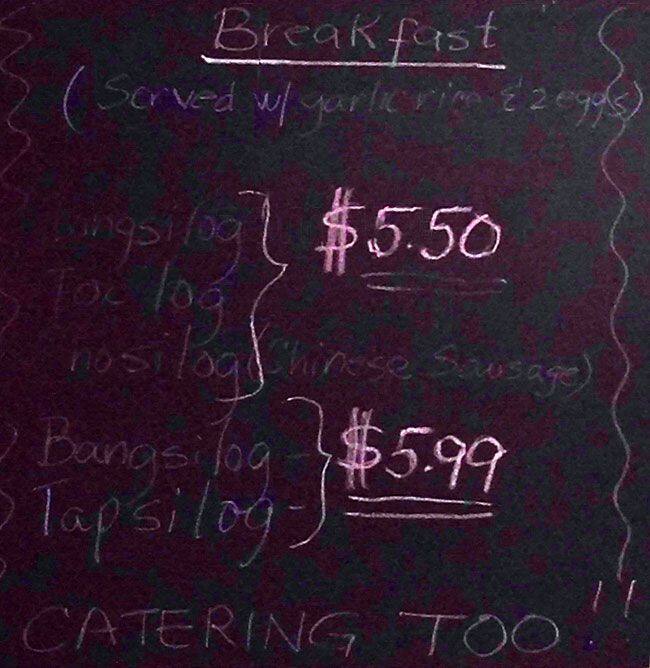 Breakfast
(Served w/ garlic rice & 2 eggs)
$5.50
(Chinese Sausage)
Bangsilog - $5.99
Tapsilog -
CATERING TOO